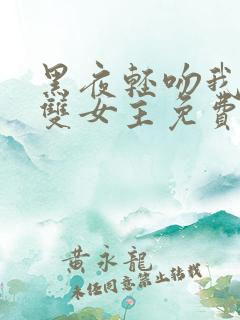 黑夜輕吻我
雙女主免費
黄永龍
未经同意禁止转载